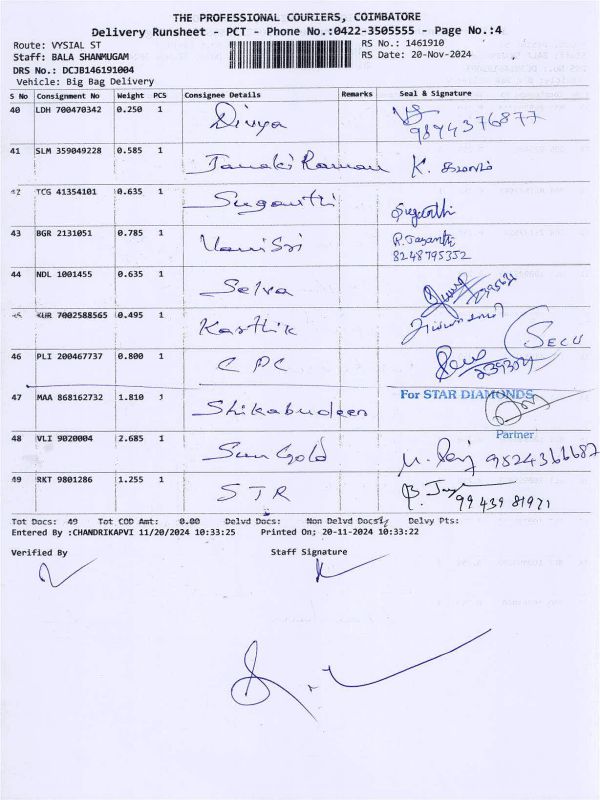 THE PROFESSIONAL COURIERS, COIMBATORE
Delivery Runsheet - PCT - Phone No.:0422-3505555 - Page No.:4
Route: VYSIAL ST RS No.: 1461910
Staff: BALA SHANMUGAM RS Date: 20-Nov-2024
DRS No.: DCJB146191004
Vehicle: Big Bag Delivery
S No Consignment No Weight PCS Consignee Details Remarks Seal & Signature
40 LDH 700470342 0.250 1 Divya 9894376877
41 SLM 359049228 0.585 1 Janaki Raman K.
42 TCG 41354101 0.635 1 Suganthi Suganthi
43 BGR 2131051 0.785 1 Vanisri R.Jayanthi
8248795352
44 NDL 1001455 0.635 1 Selva
45 KUR 7002588565 0.495 1 Karthik
46 PLI 200467737 0.800 1 CPC SECU
47 MAA 868162732 1.810 1 Shikabudeen For STAR DIAMONDS
Partner
48 VLI 9020004 2.685 1 Sun Gold 9524366687
49 RKT 9801286 1.255 1 STR 9943981971
Tot Docs: 49 Tot COD Amt: 0.00 Delvd Docs: Non Delvd Docs: Delvy Pts:
Entered By :CHANDRIKAPVI 11/20/2024 10:33:25 Printed On; 20-11-2024 10:33:22
Verified By Staff Signature